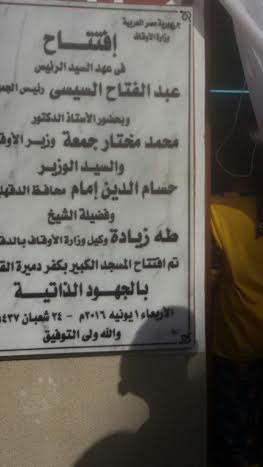 جمهورية مصر العربية
وزارة الأوقاف
إفتتاح
فى عهد السيد الرئيس
عبد الفتاح السيسى رئيس الجم
وبحضور الأستاذ الدكتور
محمد مختار جمعة وزير الأوق
والسيد الوزير
حسام الدين إمام محافظ الدقهل
وفضيلة الشيخ
طه زيادة وكيل وزارة الأوقاف بالدق
تم افتتاح المسجد الكبير بكفر دميرة الق
بالجهود الذاتية
الأربعاء ١ يونيه ٢٠١٦م - ٢٤ شعبان ١٤٣٧
والله ولى التوفيق